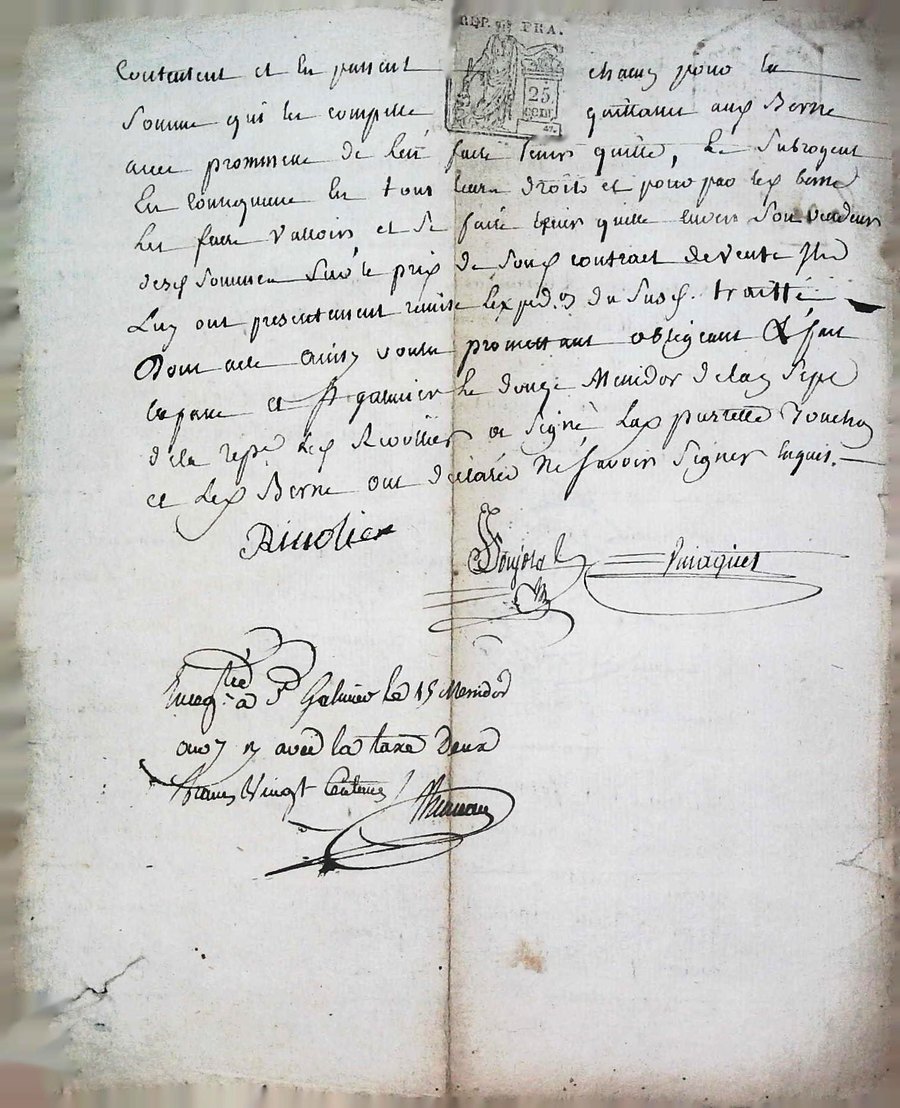 REP. FRA.
25
cent.
contentent et en passent chacuns pour la
somme qui les compette quittance aux Berne
avec promesse de l'en faire tenir quitte, le subrogent
en consequence en tous leurs droits et pour par lesd berne
les faire valloir et se faire tenir quitte envers son vendeur
desd sommes sur le prix de sond contract de vente
luy ont presentement remise l'exped.on du susd. traitté
Dont acte ainsy voulu promettant obligeant &c fait
et passé à St galmier le douze Messidor de l'an sept
de la rep. led Rivollier a signé lad
et led Berne ont declaré ne savoir signer enquis.
Rivolier
Pinaquet
Enreg.tré à St Galmier le 15 Messidor
an 7 reçu avec la taxe Deux
francs Vingt Centimes